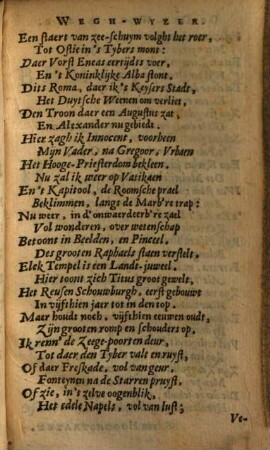 WEGH-WYZER.
Een staert van zee-schuym volght het roer,
Tot Ostie in 's Tybers mont:
Daer Vorst Eneas eertijdts voer,
En 't Koninklijke Alba stont.
Dits Roma, daer ik 's Keysers Stadt,
Het Duytsche Weenen om verliet,
Den Troon daer een Augustus zat,
En Alexander nu gebiedt.
Hier zagh ik Innocent, voorheen
Mijn Vader, na Gregoor, Urbaen
Het Hooge-Priesterdom bekleen.
Nu zal ik weer op Vatikaen
En 't Kapitool, de Roomsche prael
Beklimmen, langs de Marb're trap:
Nu weer, in d'onwaerdeerb're zael
Vol wonderen, over wetenschap
Betoont in Beelden, en Pinceel,
Des grooten Raphaels staen verstelt.
Elck Tempel is een Landt-juweel.
Hier toont zich Titus groot gewelt,
Het Reusen Schouwburgh, eerst gebouwt
In vijfthien jaer tot in den top.
Maer houdt noch, vijfthien eeuwen oudt,
Zijn grooten romp en schouders op,
Ik renn' de Zeege-poorten deur,
Tot daer den Tyber valt en ruyst,
Of daer Freskade, vol van geur,
Fonteynen na de Starren pruyst.
Of zie, in 't zelve oogenblik,
Het edele Napels, vol van lust;
Ve-